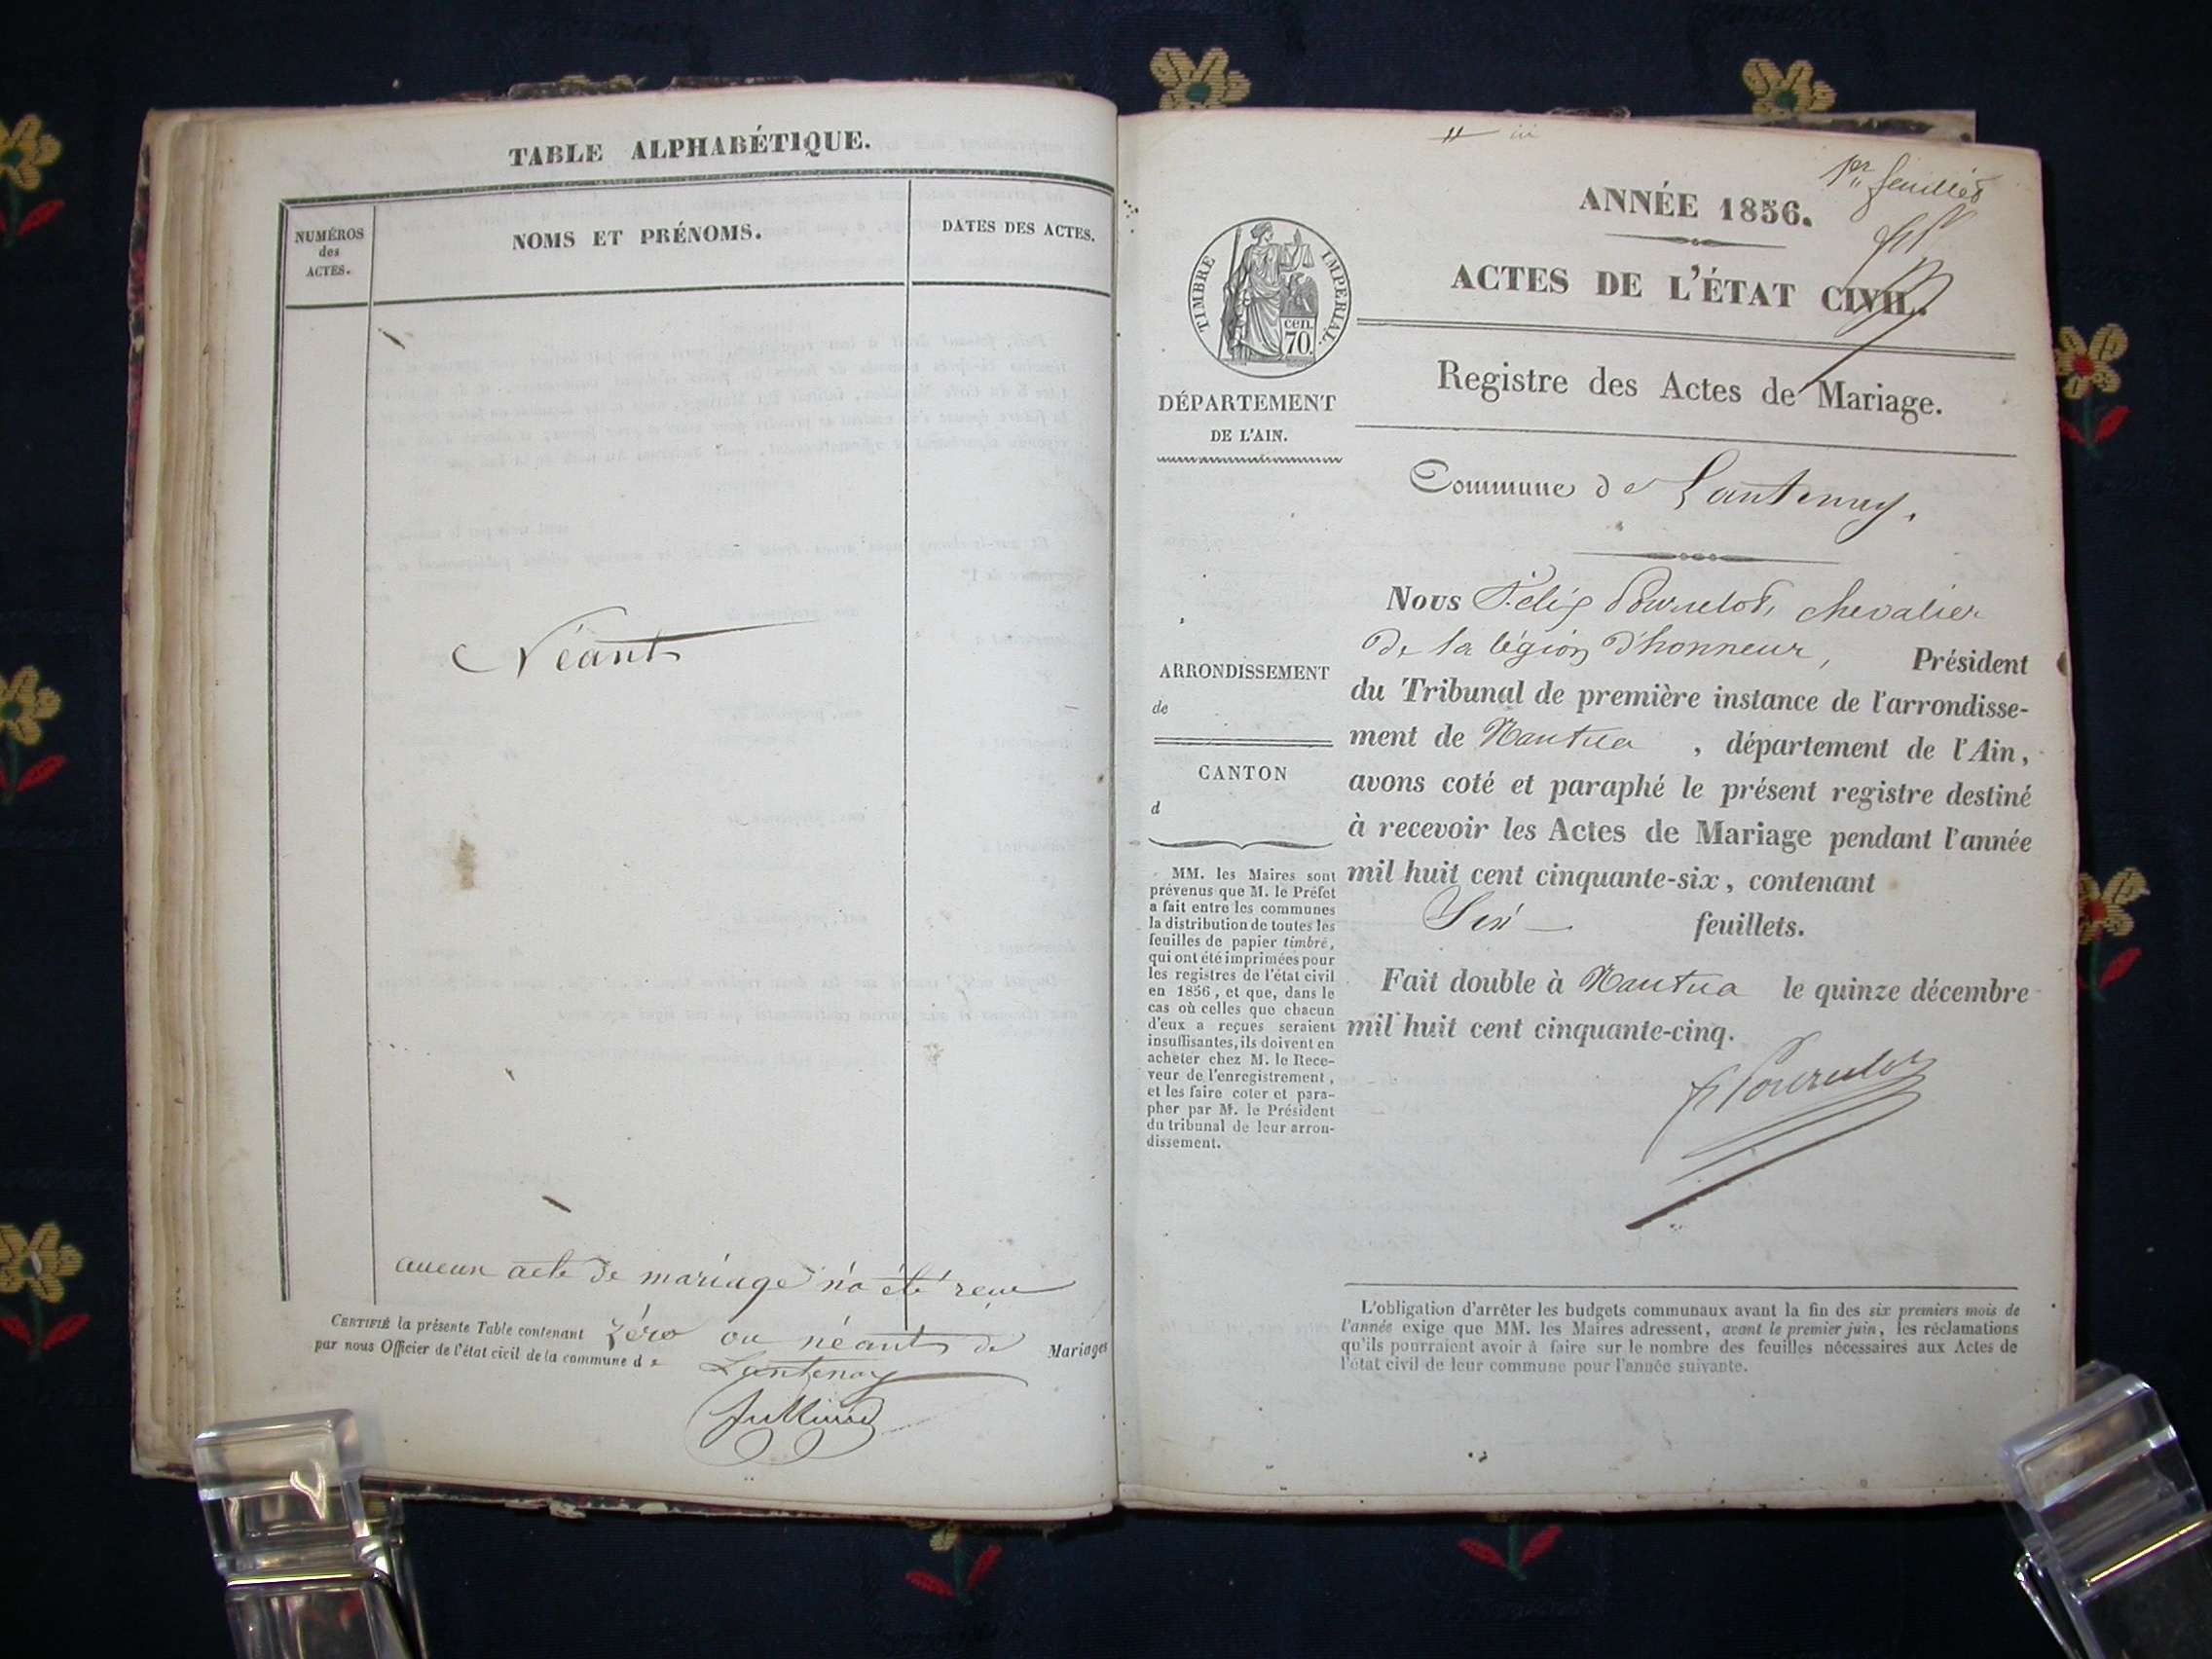 TABLE ALPHABÉTIQUE.
NUMÉROS
des
ACTES.
NOMS ET PRÉNOMS.
DATES DES ACTES.
Néant
aucun acte de mariage n'a été reçu
CERTIFIÉ la présente Table contenant zéro ou néant de Mariages
par nous Officier de l'état civil de la commune de Lantenay
1er feuillet
ANNÉE 1856.
ACTES DE L'ÉTAT CIVIL.
TIMBRE IMPERIAL
cen.
70.
Registre des Actes de Mariage.
DÉPARTEMENT
DE L'AIN.
Commune de Lantenay.
Nous Félix Pourrelot, chevalier
de la légion d'honneur, Président
du Tribunal de première instance de l'arrondisse-
ment de Nantua, département de l'Ain,
avons coté et paraphé le présent registre destiné
à recevoir les Actes de Mariage pendant l'année
mil huit cent cinquante-six, contenant
Six feuillets.
Fait double à Nantua le quinze décembre
mil huit cent cinquante-cinq.
ARRONDISSEMENT
de
CANTON
d
MM. les Maires sont
prévenus que M. le Préfet
a fait entre les communes
la distribution de toutes les
feuilles de papier timbré,
qui ont été imprimées pour
les registres de l'état civil
en 1856, et que, dans le
cas où celles que chacun
d'eux a reçues seraient
insuffisantes, ils doivent en
acheter chez M. le Rece-
veur de l'enregistrement,
et les faire coter et para-
pher par M. le Président
du tribunal de leur arron-
dissement.
L'obligation d'arrêter les budgets communaux avant la fin des six premiers mois de
l'année exige que MM. les Maires adressent, avant le premier juin, les réclamations
qu'ils pourraient avoir à faire sur le nombre des feuilles nécessaires aux Actes de
l'état civil de leur commune pour l'année suivante.